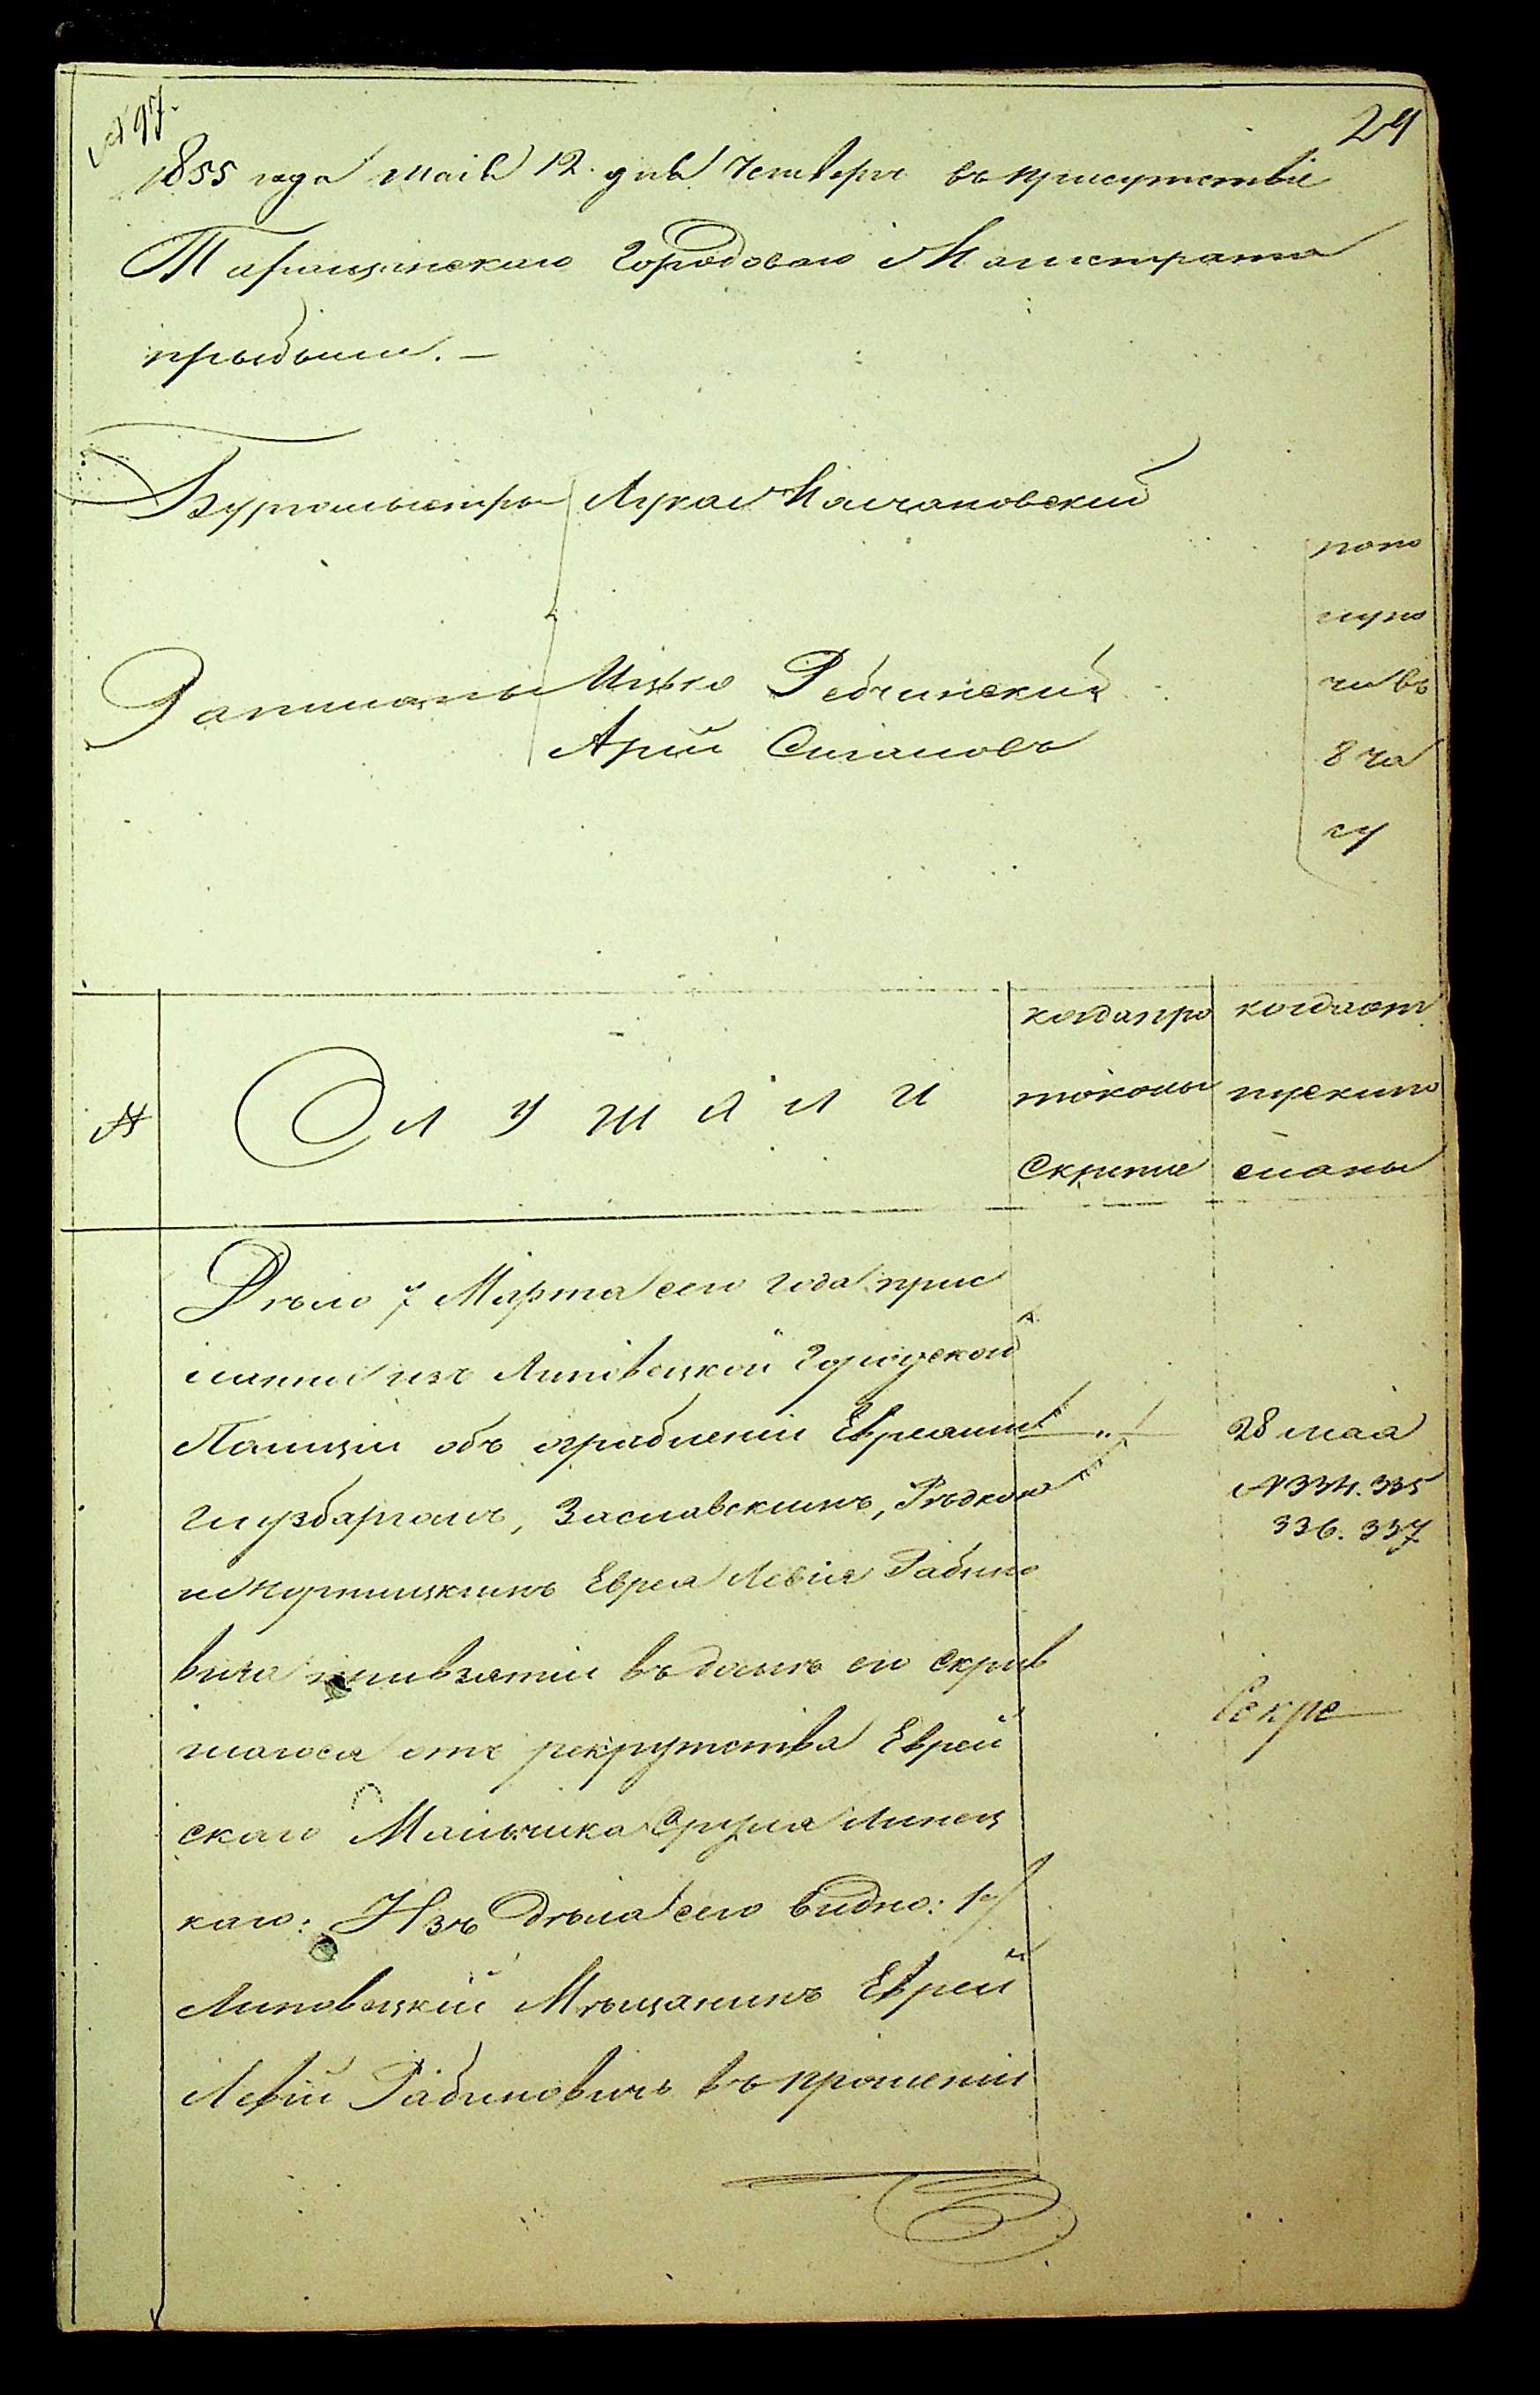 № 97.
24
1855 года маія 12 дня Четверг въ присутствіе
Таращинскаго Городоваго Магистрата
прыбыли. —
Бургомыстры Лукаш Малчановский
Ратманы Ицько Ребчинский
Арий Сигаловъ
пополуно
чи въ
8 ча
су
№
Слушали
когда про
токолы
Скрепле
когда от
пуск ипо
сланы
Дѣло 7 Марта сего года прис
ланное изъ Липовецкой Городской
Полиціи объ ограбленіи Евреями
Гинзбаргомъ, Заславскимъ, Рѣдкою
и Корницкимъ Еврея Левія Рабино
вича при взятіи въ домѣ его скрыв
шагося отъ рекрутства Еврей
скаго Мальчика Сруля Линец
каго: Изъ дѣла сего видно: 1е/
Липовецкій Мѣщанинъ Еврей
Левій Рабиновичъ въ прошеніи
28 мая
№ 334. 335
336. 337
Секре